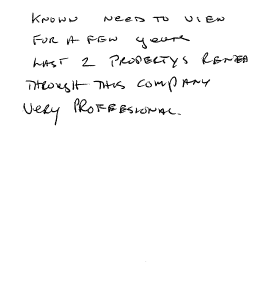 KNOWN NEED TO VIEW
FOR A FEW years
LAST 2 PROPERTYS RENTED
THROUGH THIS COMPANY
VERY PROFESSIONAL.